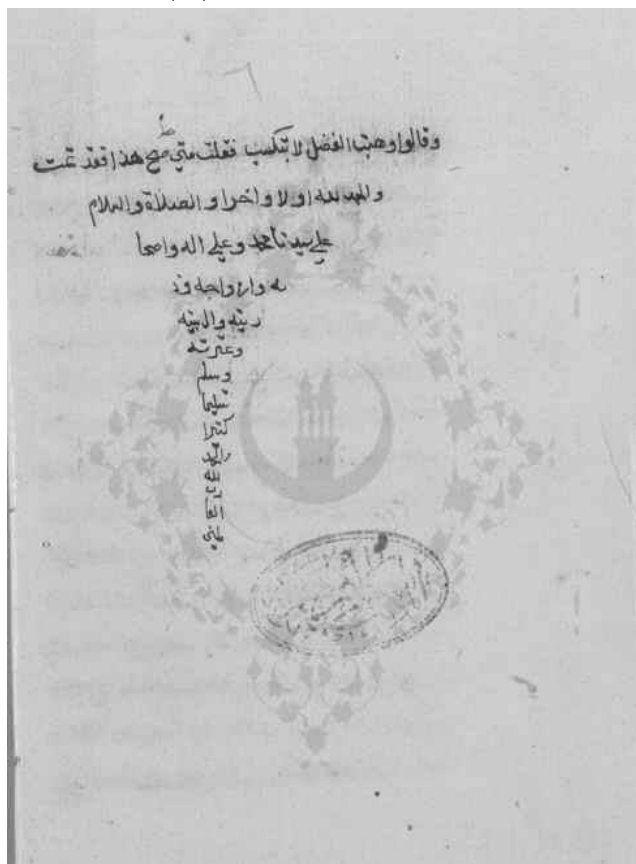 وقالوا وهب الفضل لا بتكسب فقلت متي صح هذا فقد تمت
والحمد لله اولا واخرا والصلاة والسلام
علي سيدنا محمد وعلي اله واصحا
به وازواجه وذ
ريته والبيته
وعترته
وسلم
تسليما
كثيرا
والحمد
لله رب
العا
لمين